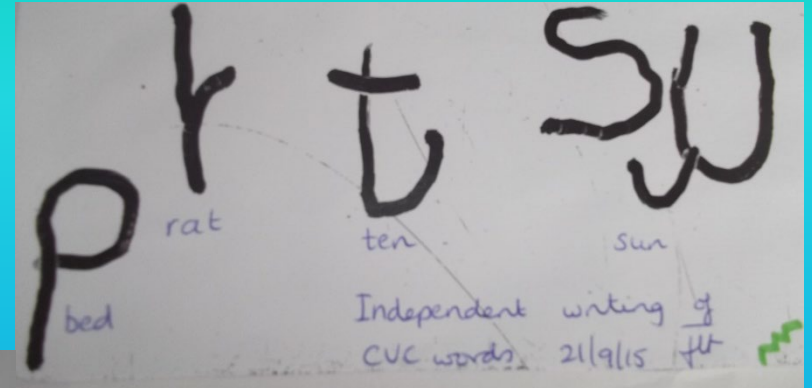 p
r
t
su
rat
ten
sun
bed
Independent writing of
CVC words 21/9/15